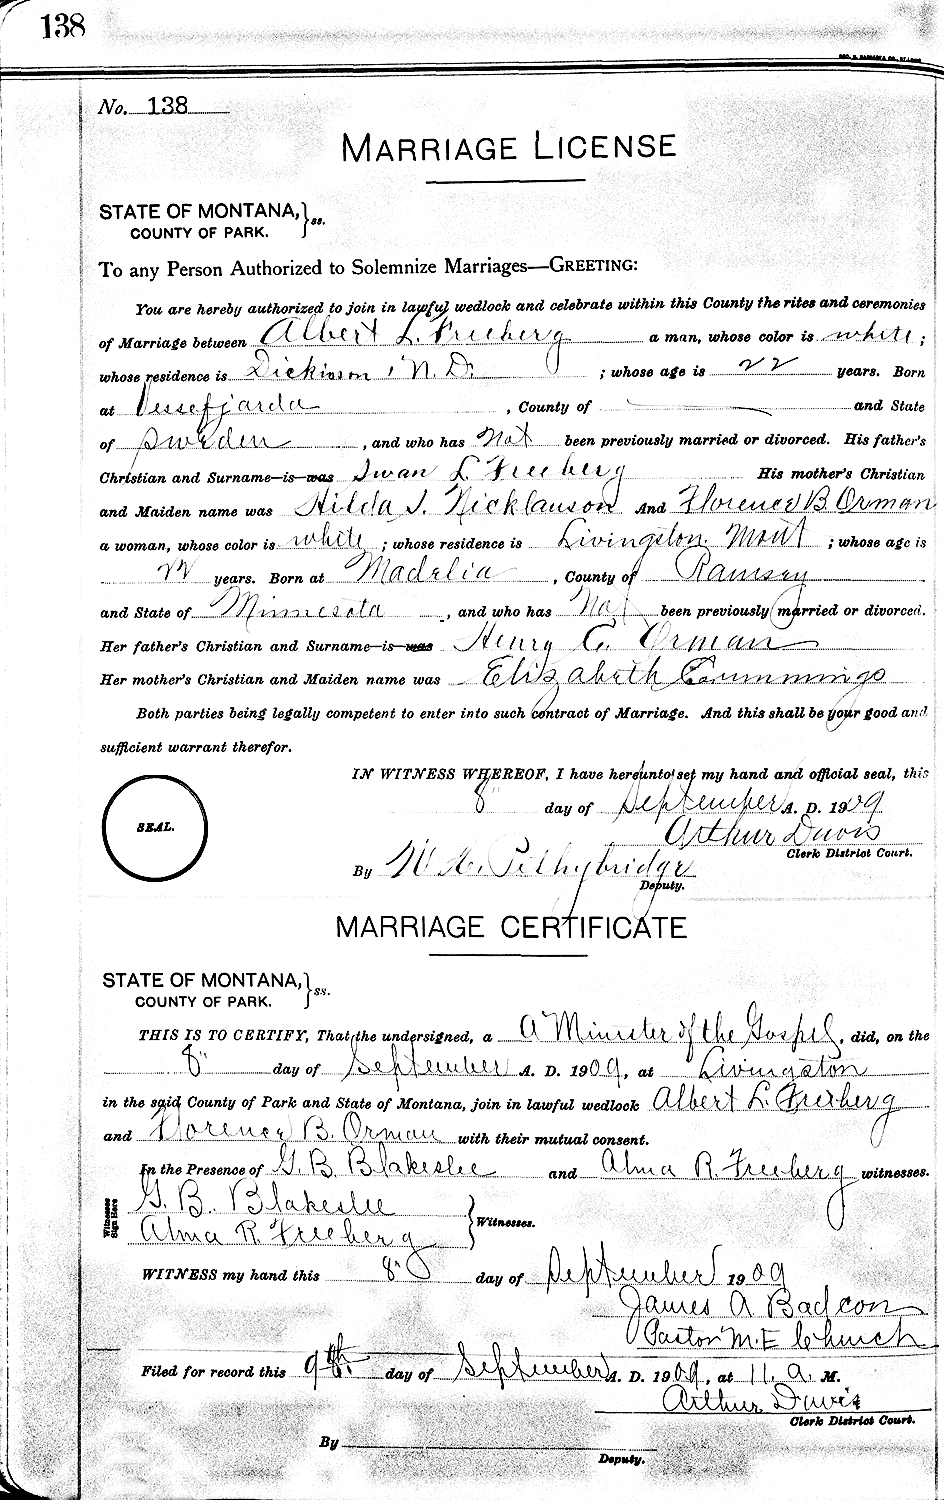 138
No. 138
MARRIAGE LICENSE
STATE OF MONTANA, } ss.
COUNTY OF PARK.
To any Person Authorized to Solemnize Marriages—GREETING:
You are hereby authorized to join in lawful wedlock and celebrate within this County the rites and ceremonies
of Marriage between Albert L. Freeberg a man, whose color is white ;
whose residence is Dickinson, N. D. ; whose age is 22 years. Born
at , County of and State
of Sweden , and who has Not been previously married or divorced. His father's
Christian and Surname is was Swan L. Freeberg His mother's Christian
and Maiden name was Hilda S. Nicklauson And Florence B. Orman
a woman, whose color is white ; whose residence is Livingston Mont ; whose age is
22 years. Born at Madelia , County of Ramsey
and State of Minnesota , and who has Not been previously married or divorced.
Her father's Christian and Surname is was Henry C. Orman
Her mother's Christian and Maiden name was Elizabeth Cummings
Both parties being legally competent to enter into such contract of Marriage. And this shall be your good and
sufficient warrant therefor.
IN WITNESS WHEREOF, I have hereunto set my hand and official seal, this
8" day of September A. D. 1909
SEAL.
Arthur Davis
Clerk District Court.
By W. H. Pethybridge
Deputy.
MARRIAGE CERTIFICATE
STATE OF MONTANA, } ss.
COUNTY OF PARK.
THIS IS TO CERTIFY, That the undersigned, a A Minister of the Gospel, did, on the
8" day of September A. D. 1909, at Livingston
in the said County of Park and State of Montana, join in lawful wedlock Albert L. Freeberg
and Florence B. Orman with their mutual consent.
In the Presence of G. B. Blakeslee and Alma R. Freeberg witnesses.
Witnesses Sign Here
G. B. Blakeslee
Alma R. Freeberg
Witnesses.
WITNESS my hand this 8" day of September 1909
James A Badcon
Pastor M.E Church
Filed for record this 9th day of September A. D. 1909, at 11. a. M.
Arthur Davis
Clerk District Court.
By
Deputy.